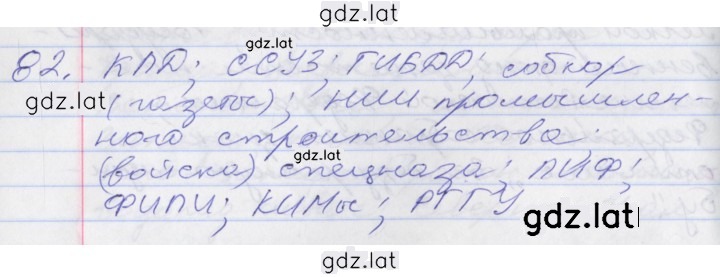 gdz.lat
82. КПД; ССУЗ; ГИБДД; собкор
gdz.lat
gdz.lat
(газеты); НИИ промышлен-
ного строительства;
(войска) спецназа; ПИФ;
ФИПИ; КИМы; РГГУ
gdz.lat
gdz.lat